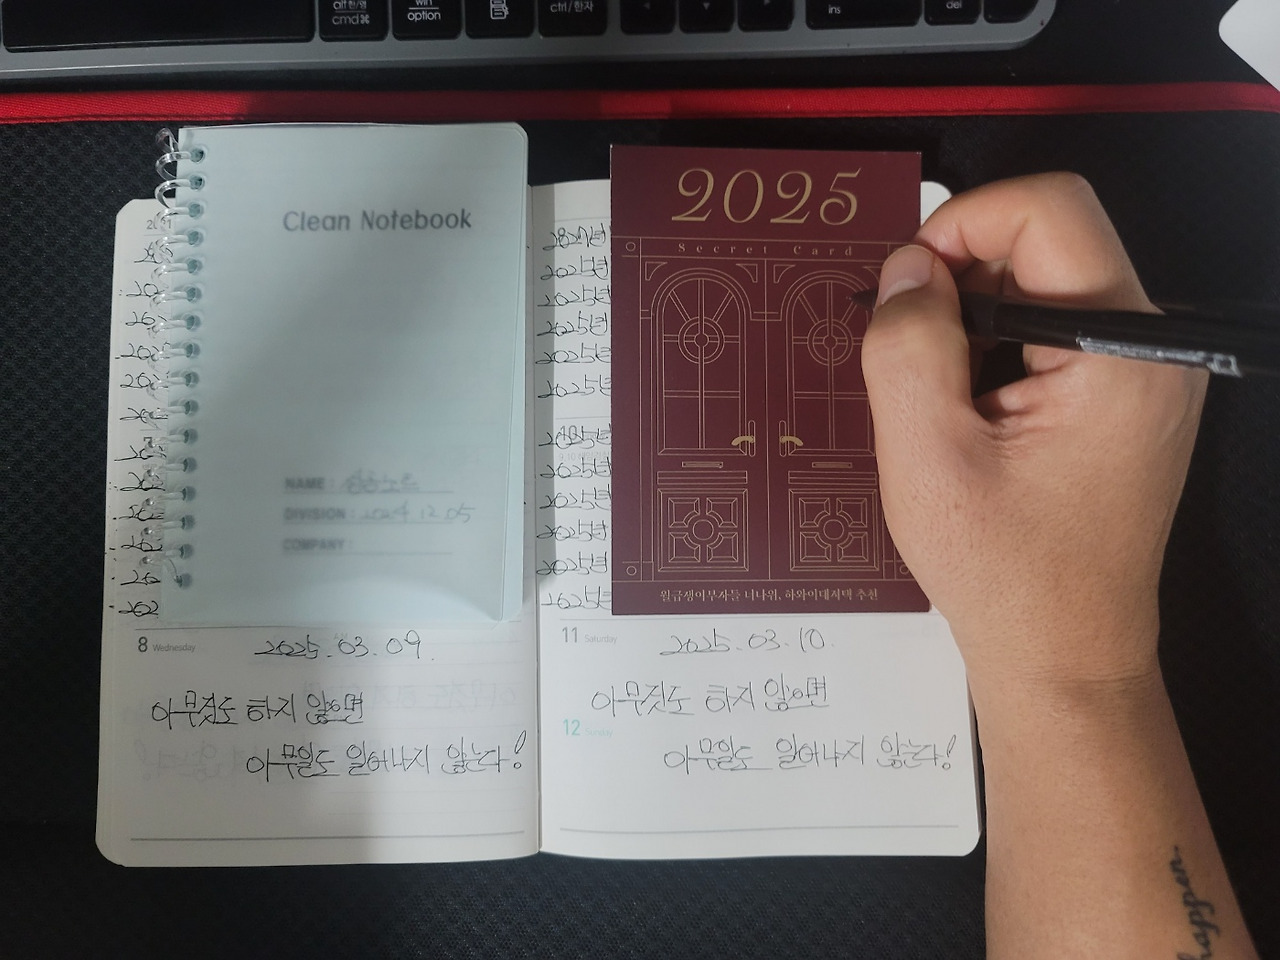 alt 한/영
cmd⌘
win
option
ctrl/한자
ins
del
Clean Notebook
NAME :
DIVISION : 2024 12 05
COMPANY :
2025년
2025년
2025년
2025년
2025년
2025년
2025년
2025년
2025년
2025년
2025년
2025
Secret Card
월급쟁이부자들 너나위, 하와이대저택 추천
8 Wednesday
2025. 03. 09.
아무것도 하지 않으면
아무일도 일어나지 않는다!
11 Saturday
2025. 03. 10.
아무것도 하지 않으면
12 Sunday
아무일도 일어나지 않는다!
happen.